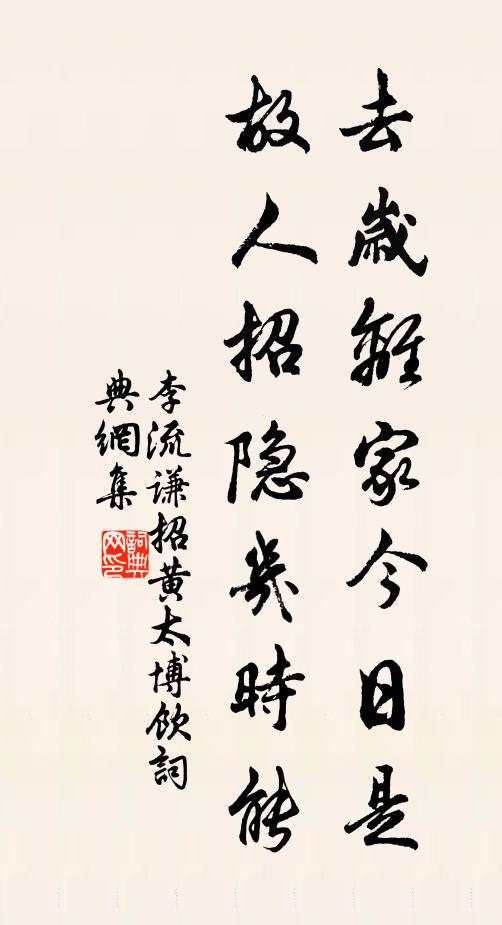 去歲離家今日是
故人招隐幾時能
李流谦招黄太博飲詞
典網集
詞典
网印